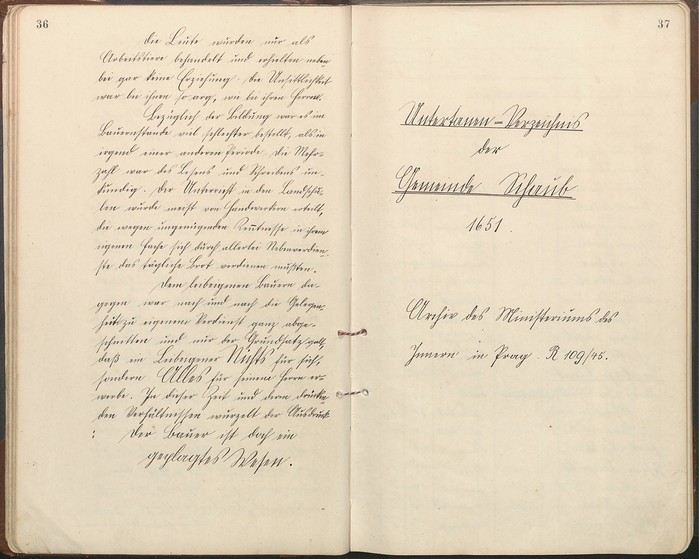 36
Die Leute wurden nur als
Arbeitstiere behandelt und erhielten neben-
bei gar keine Erziehung. Die Unsittlichkeit
war bei ihnen so arg, wie bei ihren Herren.
Bezüglich der Bildung war es im
Bauernstande viel schlechter bestellt, als in
irgend einer anderen Periode. Die Mehr-
zahl war des Lesens und Schreibens un-
kundig. Der Unterricht in den Landschu-
len wurde meist von Handwerkern erteilt,
die wegen ungenügenden Kenntnisse in ihrem
eigenen Fache sich durch allerlei Nebenverdien-
ste das tägliche Brot verdienen mußten.
Dem leibeigenen Bauern da-
gegen war nach und nach die Gelegen-
heit zu eigenem Verdienst ganz abge-
schnitten und nur der Grundsatz galt,
daß ein Leibeigener Nichts für sich,
sondern Alles für seinem Herrn er-
werbe. In dieser Zeit und deren drücken-
den Verhältnissen wurzelt der Ausdruck
: Der Bauer ist doch ein
geplagtes Wesen.
37
Untertanen-Verzeichnis
der
Gemeinde Schaub
1651.
Archiv des Ministeriums des
Innern in Prag. R 109/45.